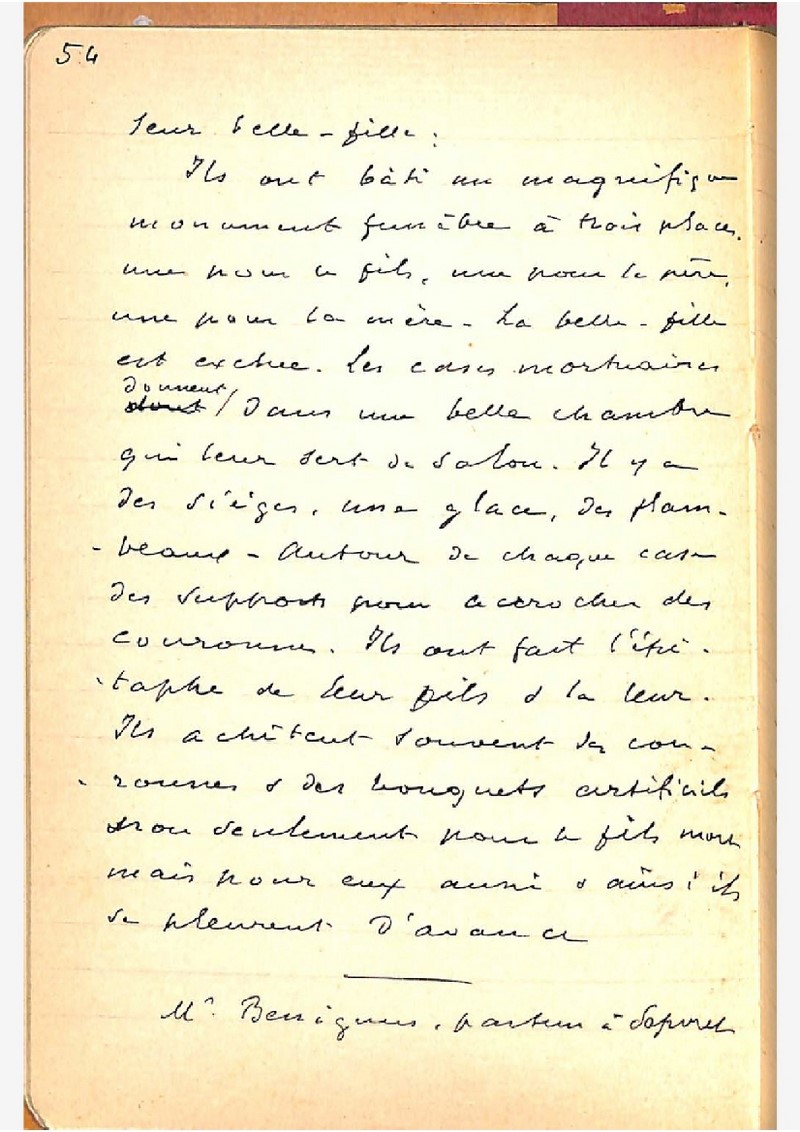 54
leur belle-fille :
Ils ont bâti un magnifique
monument funèbre à trois places.
une pour le fils, une pour le père,
une pour la mère - La belle-fille
est exclue. Les cases mortuaires
donnent
dont / dans une belle chambre
qui leur sert de salon. Il y a
des sièges, une glace, des flam-
-beaux - Autour de chaque case
des supports pour accrocher des
couronnes. Ils ont fait l'épi-
-taphe de leur fils & la leur.
Ils achètent souvent des cou-
-ronnes & des bouquets artificiels
non seulement pour le fils mort
mais pour eux aussi & ainsi ils
se pleurent d'avance
Mr. pasteur à